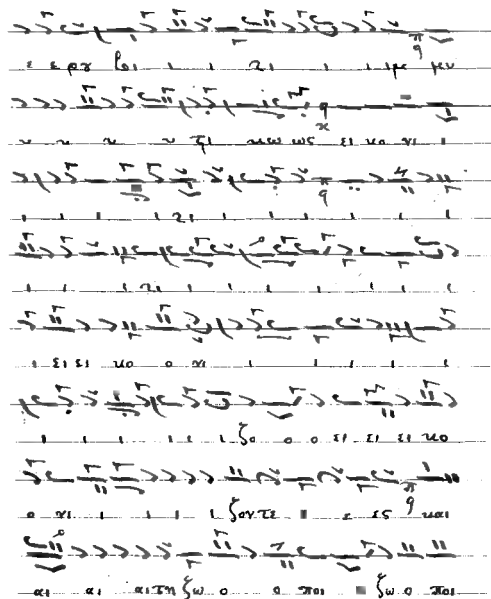 ε ε ρȣ βι ι ι χι ι ι ι ιμ μυ
υ υ υ υ στι κω ως ει κο νι ι
ι ι ι ι χι ι ι ι ι ι ι
ι ι ι χι ι ι ι ι ι ι ι
ι ει ει κο ο νι ι ι ι ι ι
ι ι ι ι ι ι ζο ο ο ει ει ει κο
ο νι ι ι ι ι ι ζοντε ε ες και
αι αι αι τη ζω ο ο ποι ζω ο ποι